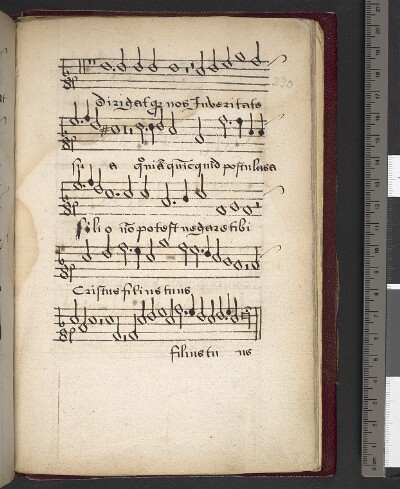 230
dirigatqȝ nos Inveritate
sp a qm̄ā qūicquid postulasa
filio nō potest negare tibi
Cristus filius tuus
filius tu us